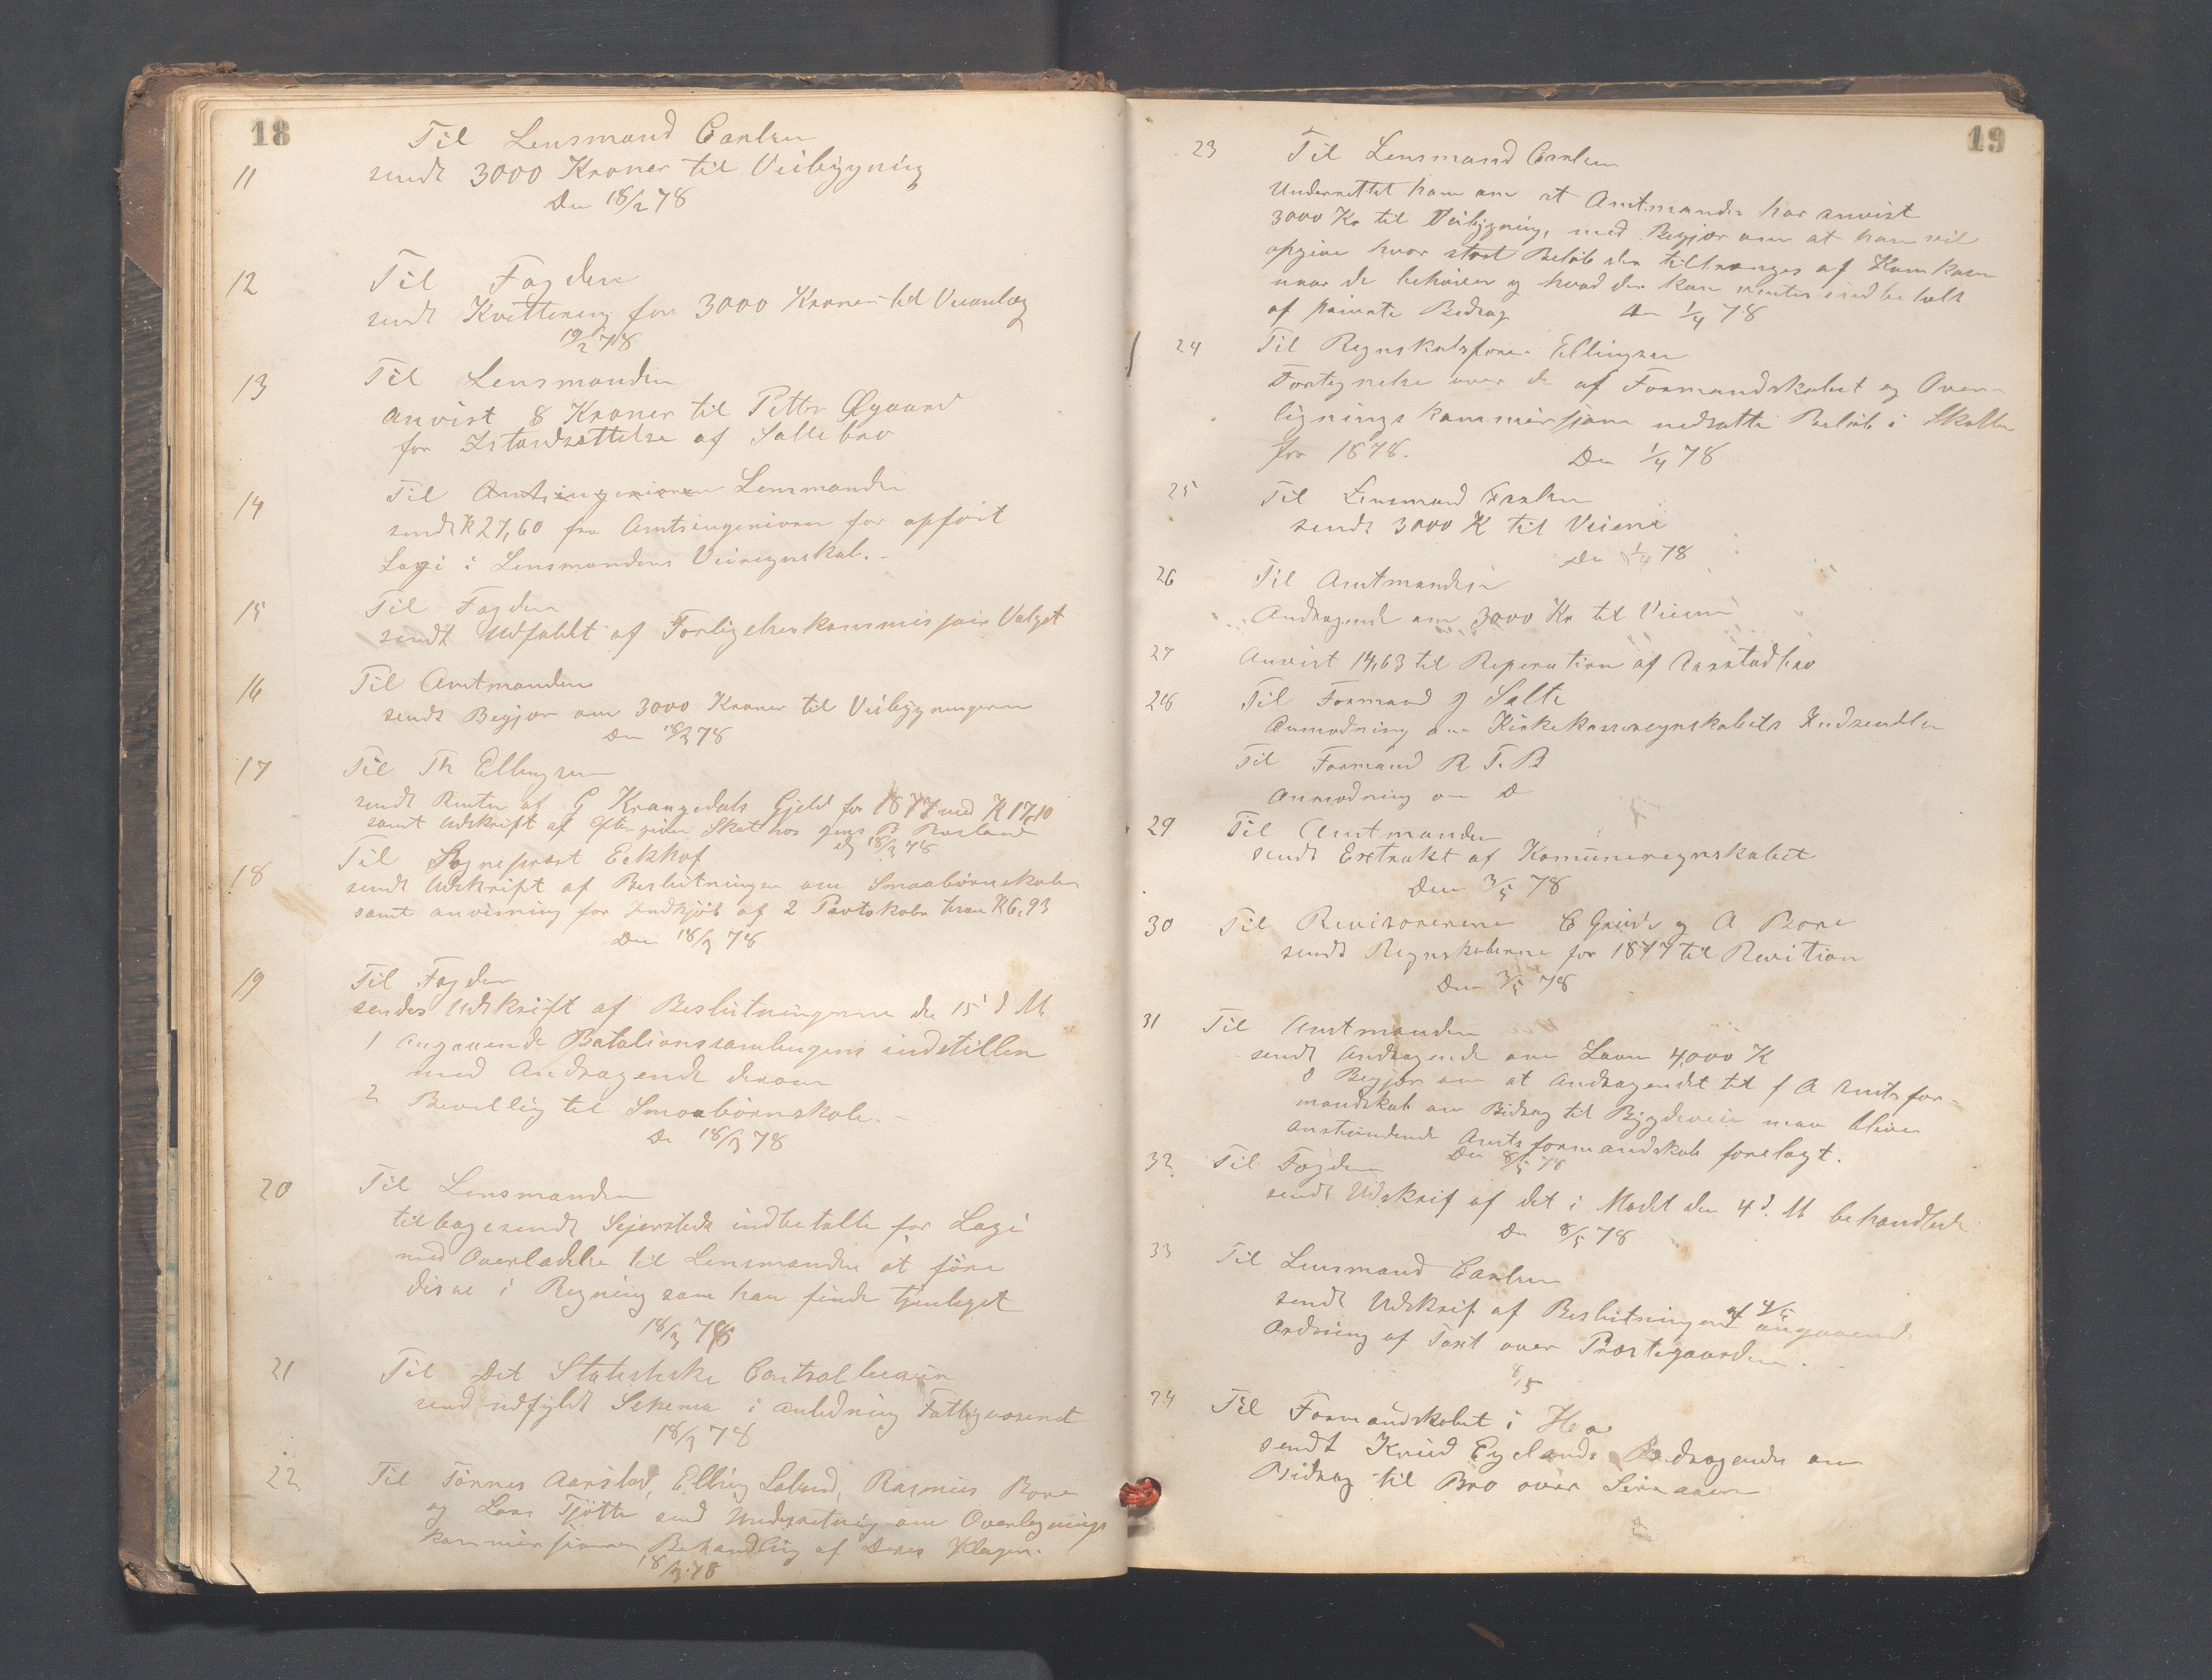 18
Til Lensmand Carlsen
11 sendt 3000 Kroner til Veibygning
Den 18/2 78
12 Til Fogden
sendt Kvittering for 3000 Kroner til Veianlæg
19/2 78
13 Til Lensmanden
anvist 8 Kroner til Petter Øgaard
for Istandsættelse af Sallebro
14 Til Amtsingeniøren Lensmanden
sendt K 27,60 fra Amtsingeniøren for opført
Logi i Lensmandens Veiregnskab.
15 Til Fogden
sendt Udfaldt af Forligelseskommissair Valget
16 Til Amtmanden
sendt Begjær om 3000 Kroner til Veibygningerne
Den 18/3 78
17 Til Th Ellingsen
sendt Renter af G Krangedals Gjeld for 1877 med K 17,10
samt Udskrift af Skat hos Jens B Rosland
18/3 78
18 Til Sogneprest Eckhof
sendt Udskrift af Beslutningen om Smaabørnskolen
samt anvisning for Indkjøb af 2 K 6,93
Den 18/3 78
19 Til Fogden
sendes Udskrift af Beslutningerne de 15 d M
1 Angaaende Batalionssamlingens indstillen
med Andragende derom
2 Bevillig til Smaabørnskole.
De 18/3 78
20 Til Lensmanden
tilbagesendt Sejersteds indbetalte for Logi
med Overladelse til Lensmanden at føre
disse i Regning som han finde tjenligst
18/3 78
21 Til Det Statistiske Centralbureau
send udfyldt Schema i anledning Fattigvæsenet
18/3 78
22 Til Tønnes Aarstad, Elling Lalund, Rasmus Bore
og Lars Tjøtte send Underretning om Overlignings
kommissionen Behandling af Deres Klager.
18/3 78
19
23 Til Lensmand Carlsen
Underrettet ham om at Amtmanden har anvist
3000 Kr til Veibygning, med Begjær om at han vil
opgive hvor stort Beløb der tiltrænges af Komkassen
naar de behøves og hvad der kan ventes indbetalt
af private Bidrag Den 1/4 78
24 Til Regnskabsfører Ellingsen
Fortegnelse over de af Formandskabet og Over-
ligningskommissjonen nedsatte Beløb i Skatten
for 1878. Den 1/4 78
25 Til Lensmand Carlsen
sendt 3000 K til Veiene
Den 1/4 78
26 Til Amtmanden
Andragende om 3000 Kr til Veiene
27 Anvist 14,63 til Reperation af Aarstadbro
28 Til Formand J Salte
Anmodning om Kirkekasseregnskabets Indsendelse
Til Formand R T. B
Anmodning om D
29 Til Amtmanden
sendt Extrakt af Komuneregnskabet
Den 3/5 78
30 Til Revisorerne C Grude og A Bore
sendt Regnskaberne for 1877 til Revition
Den 3/5 78
31 Til Amtmanden
sendt Andragende om Laan 4,000 K
o Begjær om at Andragendet til f A Amtsfor-
mandskab om Bidrag til Bygdeveie maa blive
anstundende Amtsformandskab forelagt.
Den 8/5 78
32 Til Fogden
sendt Udskrif af det i Mødet den 4 d. M behandlede
Den 8/5 78
33 Til Lensmand Carlsen
sendt Udskrif af Beslutningen af 4/5 angaaend
Ordning af Taxt over Præstegaarden.
8/5
34 Til Formandskabet i Haa
sendt Knud Egelands Andragende om
Bidrag til Bro over Siraaen